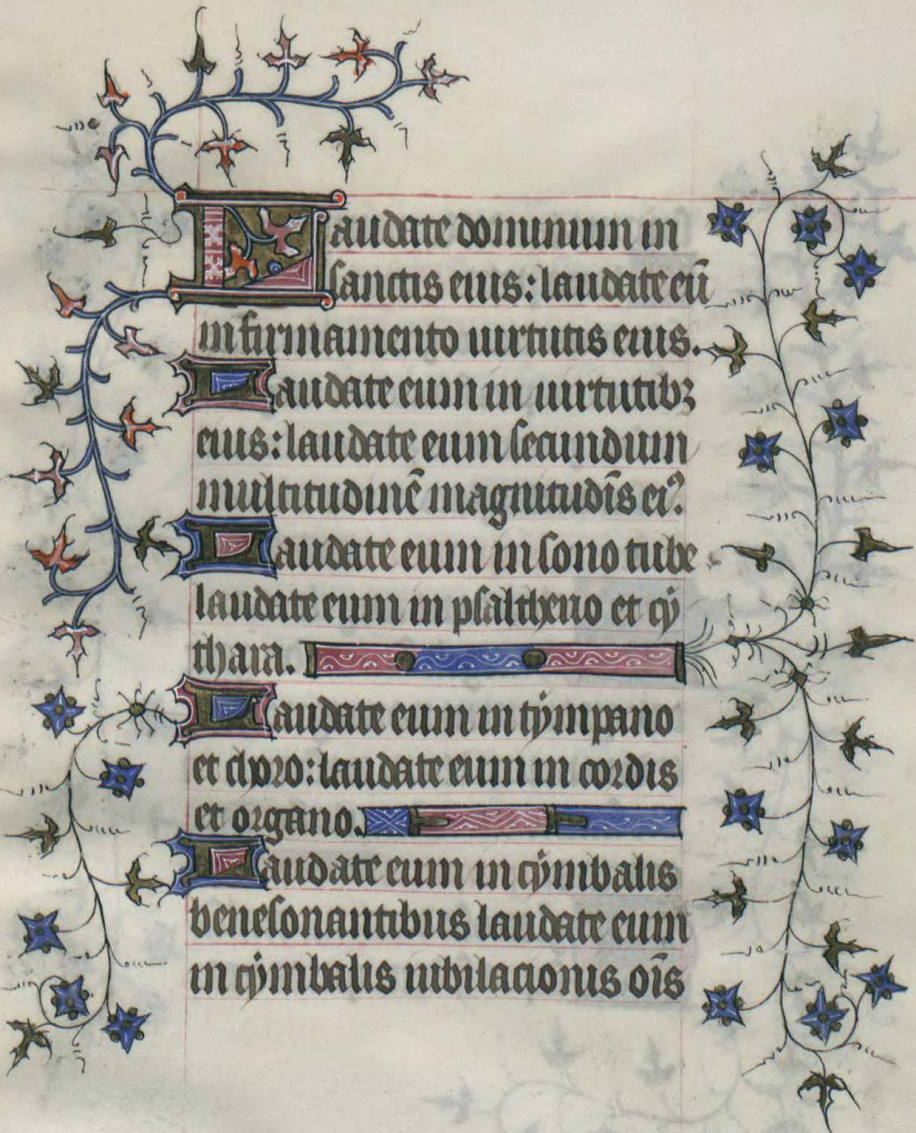 Laudate dominum in
sanctis eius: laudate eū
in firmamento uirtutis eius.
Laudate eum in uirtutibꝫ
eius: laudate eum secundum
multitudinē magnitudīs eiꝰ.
Laudate eum in sono tube
laudate eum in psalterio et cẏ
thara.
Laudate eum in tẏmpano
et choro: laudate eum in cordis
et organo.
Laudate eum in cẏmbalis
benesonantibus laudate eum
in cẏmbalis iubilacionis oīs